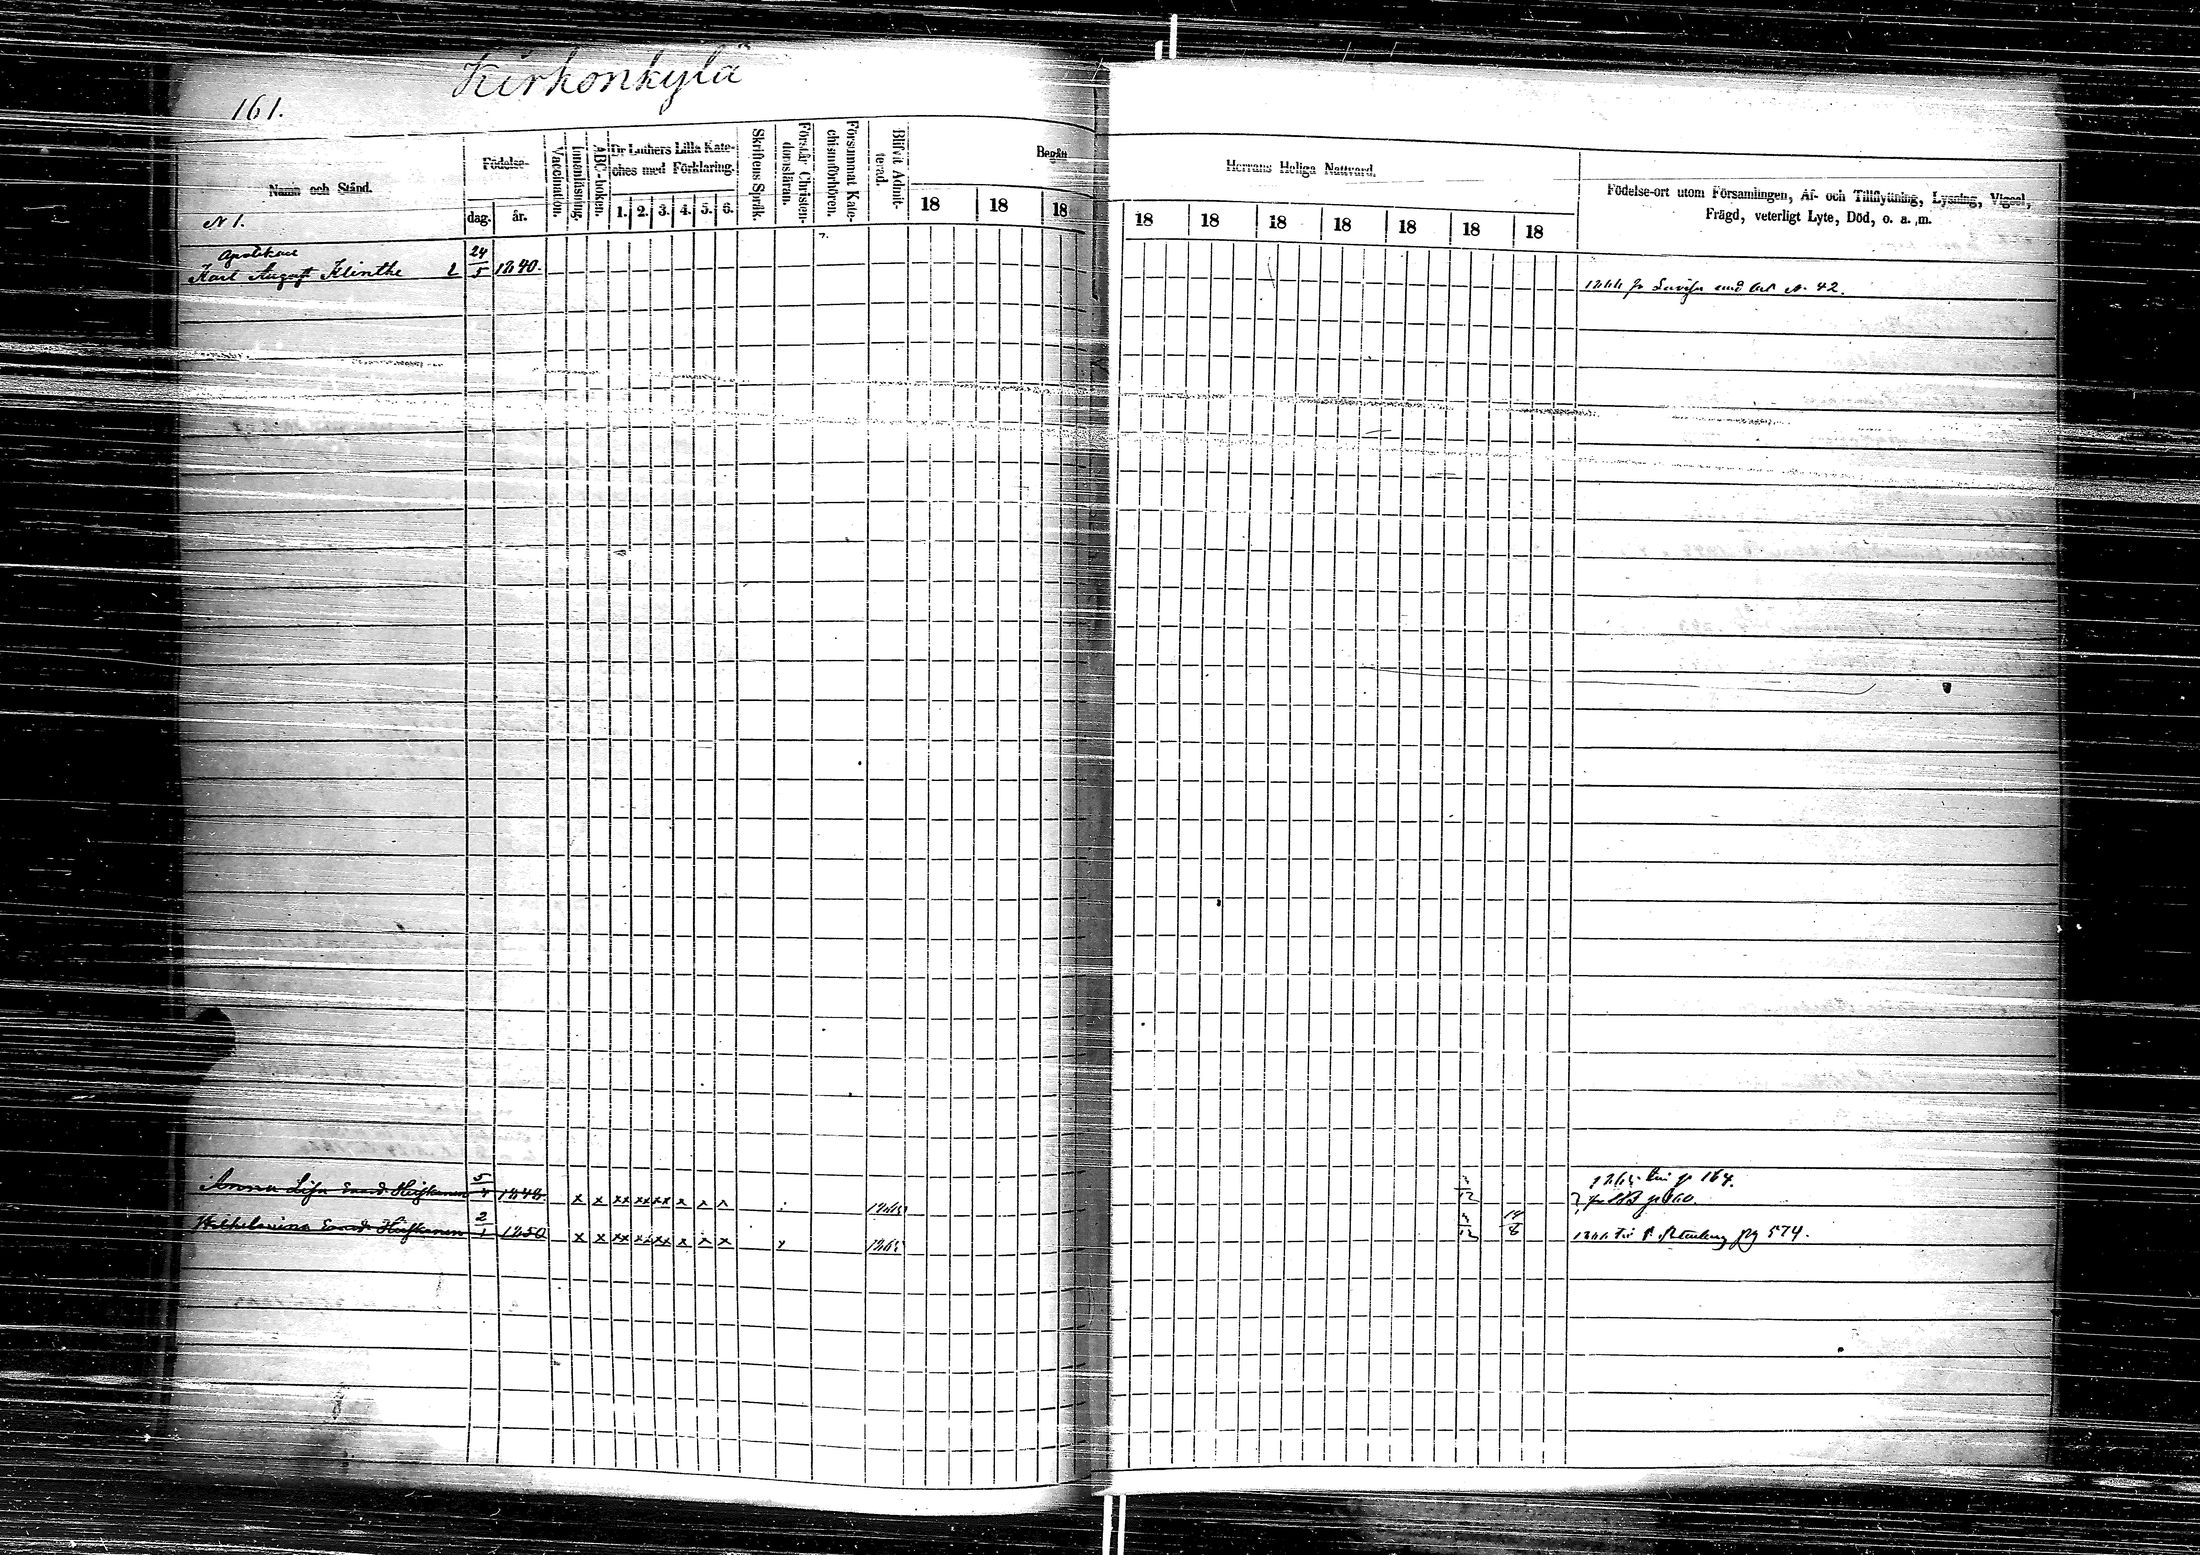 Kirkonkylä
161.
Namn och Stånd.
N 1.
Födelse-
dag.
år.
Vaccination.
Innanläsning.
ABC-boken.
Dr Luthers Lilla Kate-
ches med Förklaring.
1. 2. 3. 4. 5. 6.
Skriftens Språk.
Förstår Christen-
domsläran.
Försummat Kate-
chismiförhören.
Blifvit Admit-
terad.
Begått
Herrans Heliga Nattvard.
18 18 18 18 18 18 18 18 18 18
Födelse-ort utom Församlingen, Af- och Tillflyttning, Lysning, Vigsel,
Frägd, veterligt Lyte, Död, o. a. m.
Apotekare
Karl August Klinthe 24/5 1840. 42.
Anna Lisa Heiskanen 5 1848 x x xx xx xx x x x 3/12 p 164.
Wilhelmina Heiskanen 2/1 1850 x x xx xx xx x x x x 1865 3/12 14/8 pg 574.